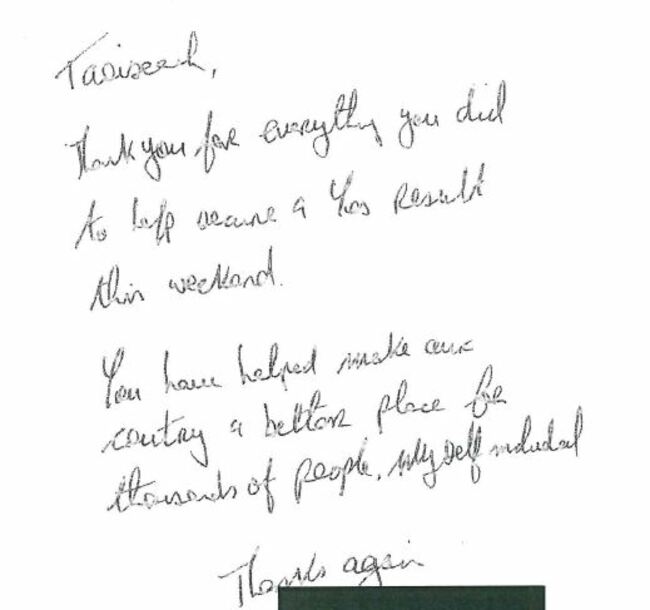 Taoiseach,
Thank you for everything you did
to help secure a Yes Result
this weekend.
You have helped make our
coutry a better place for
thousands of people, myself included
Thanks again